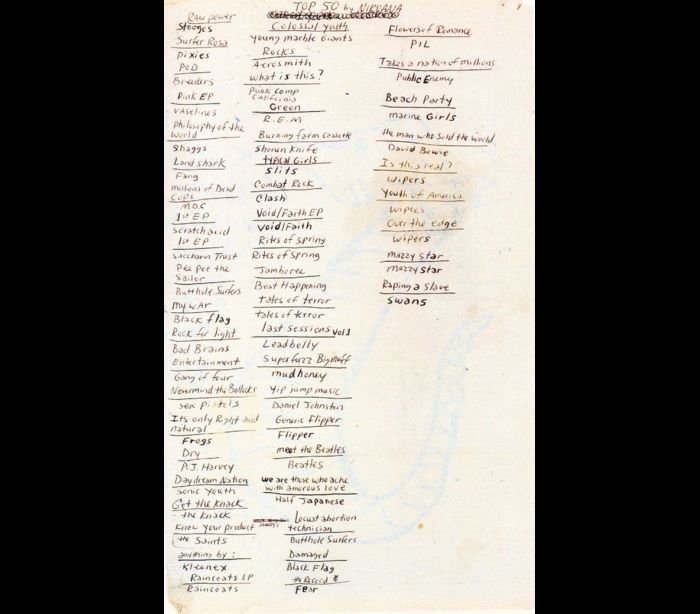 TOP 50 by NIRVANA
Raw power
Stooges
Surfer Rosa
Pixies
POD
Breeders
Pink EP
Vaselines
Philosophy of the
World
Shaggs
Land shark
Fang
Millions of Dead
Cops
M.D.C
1st EP
Scratch acid
1st EP
Saccharin Trust
Pee Pee the
Sailor
Butthole Surfers
My WAr
Black flag
Rock for light
Bad Brains
Entertainment
Gang of four
Nevermind the Bollocks
sex pistols
Its only Right and
natural
Frogs
Dry
P.J. Harvey
Daydream Nation
Sonic Youth
Get the Knack
the Knack
Know Your product
the Saints
anything by:
Kleenex
Raincoats LP
Raincoats
Colossal youth
Young marble Giants
Rocks
Aerosmith
What is this?
Punk Comp
California
Green
R.E.M
Burning farm Cassette
Shonen Knife
typical Girls
Slits
Combat Rock
Clash
Void/Faith EP
Void/Faith
Rites of Spring
Rites of Spring
Jamboree
Beat Happening
tales of terror
tales of terror
last sessions Vol 1
Leadbelly
Superfuzz Bigmuff
mudhoney
Yip jump music
Daniel Johnston
Generic Flipper
Flipper
meet the Beatles
Beatles
we are those who ache
with amorous love
Half Japanese
Locust abortion
technician
Butthole Surfers
Damaged
Black Flag
the Record
Fear
Flowers of Romance
PIL
Takes a nation of millions
Public Enemy
Beach Party
marine Girls
the man who sold the world
David Bowie
Is this real?
Wipers
Youth of America
Wipers
Over the edge
Wipers
mazzy star
mazzy star
Raping a slave
Swans